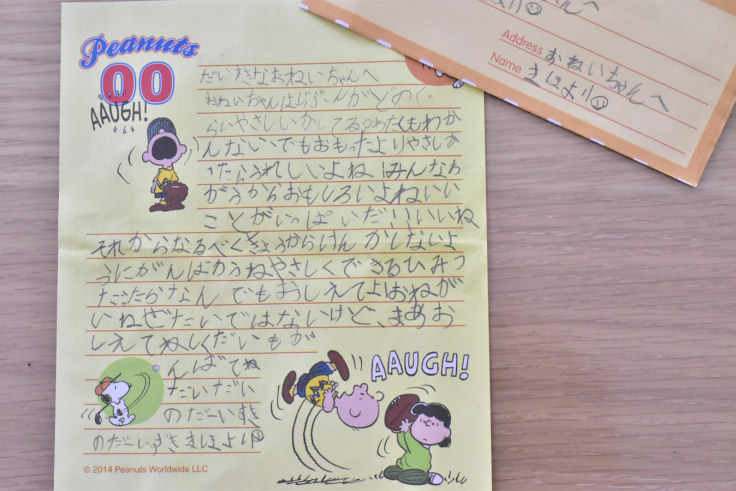 Peanuts
00
AAUGH!
だいすきなおねいちゃんへ
おねいちゃんはじぶんがどのぐ
らいやさしいかしてる?わたくもわか
んないでもおもったよりやさしか
ったらうれしいよね みんなち
がうからおもしろいよねいい
ことがいっぱいだ!!いいね
それからなるべくきょうからけんかしないよ
うにがんばろうねやさしくできるひみつ
だったらなんでもおしえてよおねが
いねぜたいではないけど、まあお
しえてねしくだいもが
んばてね
だいだい
のだーいすき
のだーいすききほより
AAUGH!
© 2014 Peanuts Worldwide LLC
ちゃんへ
より
Address おねいちゃんへ
Name きほより